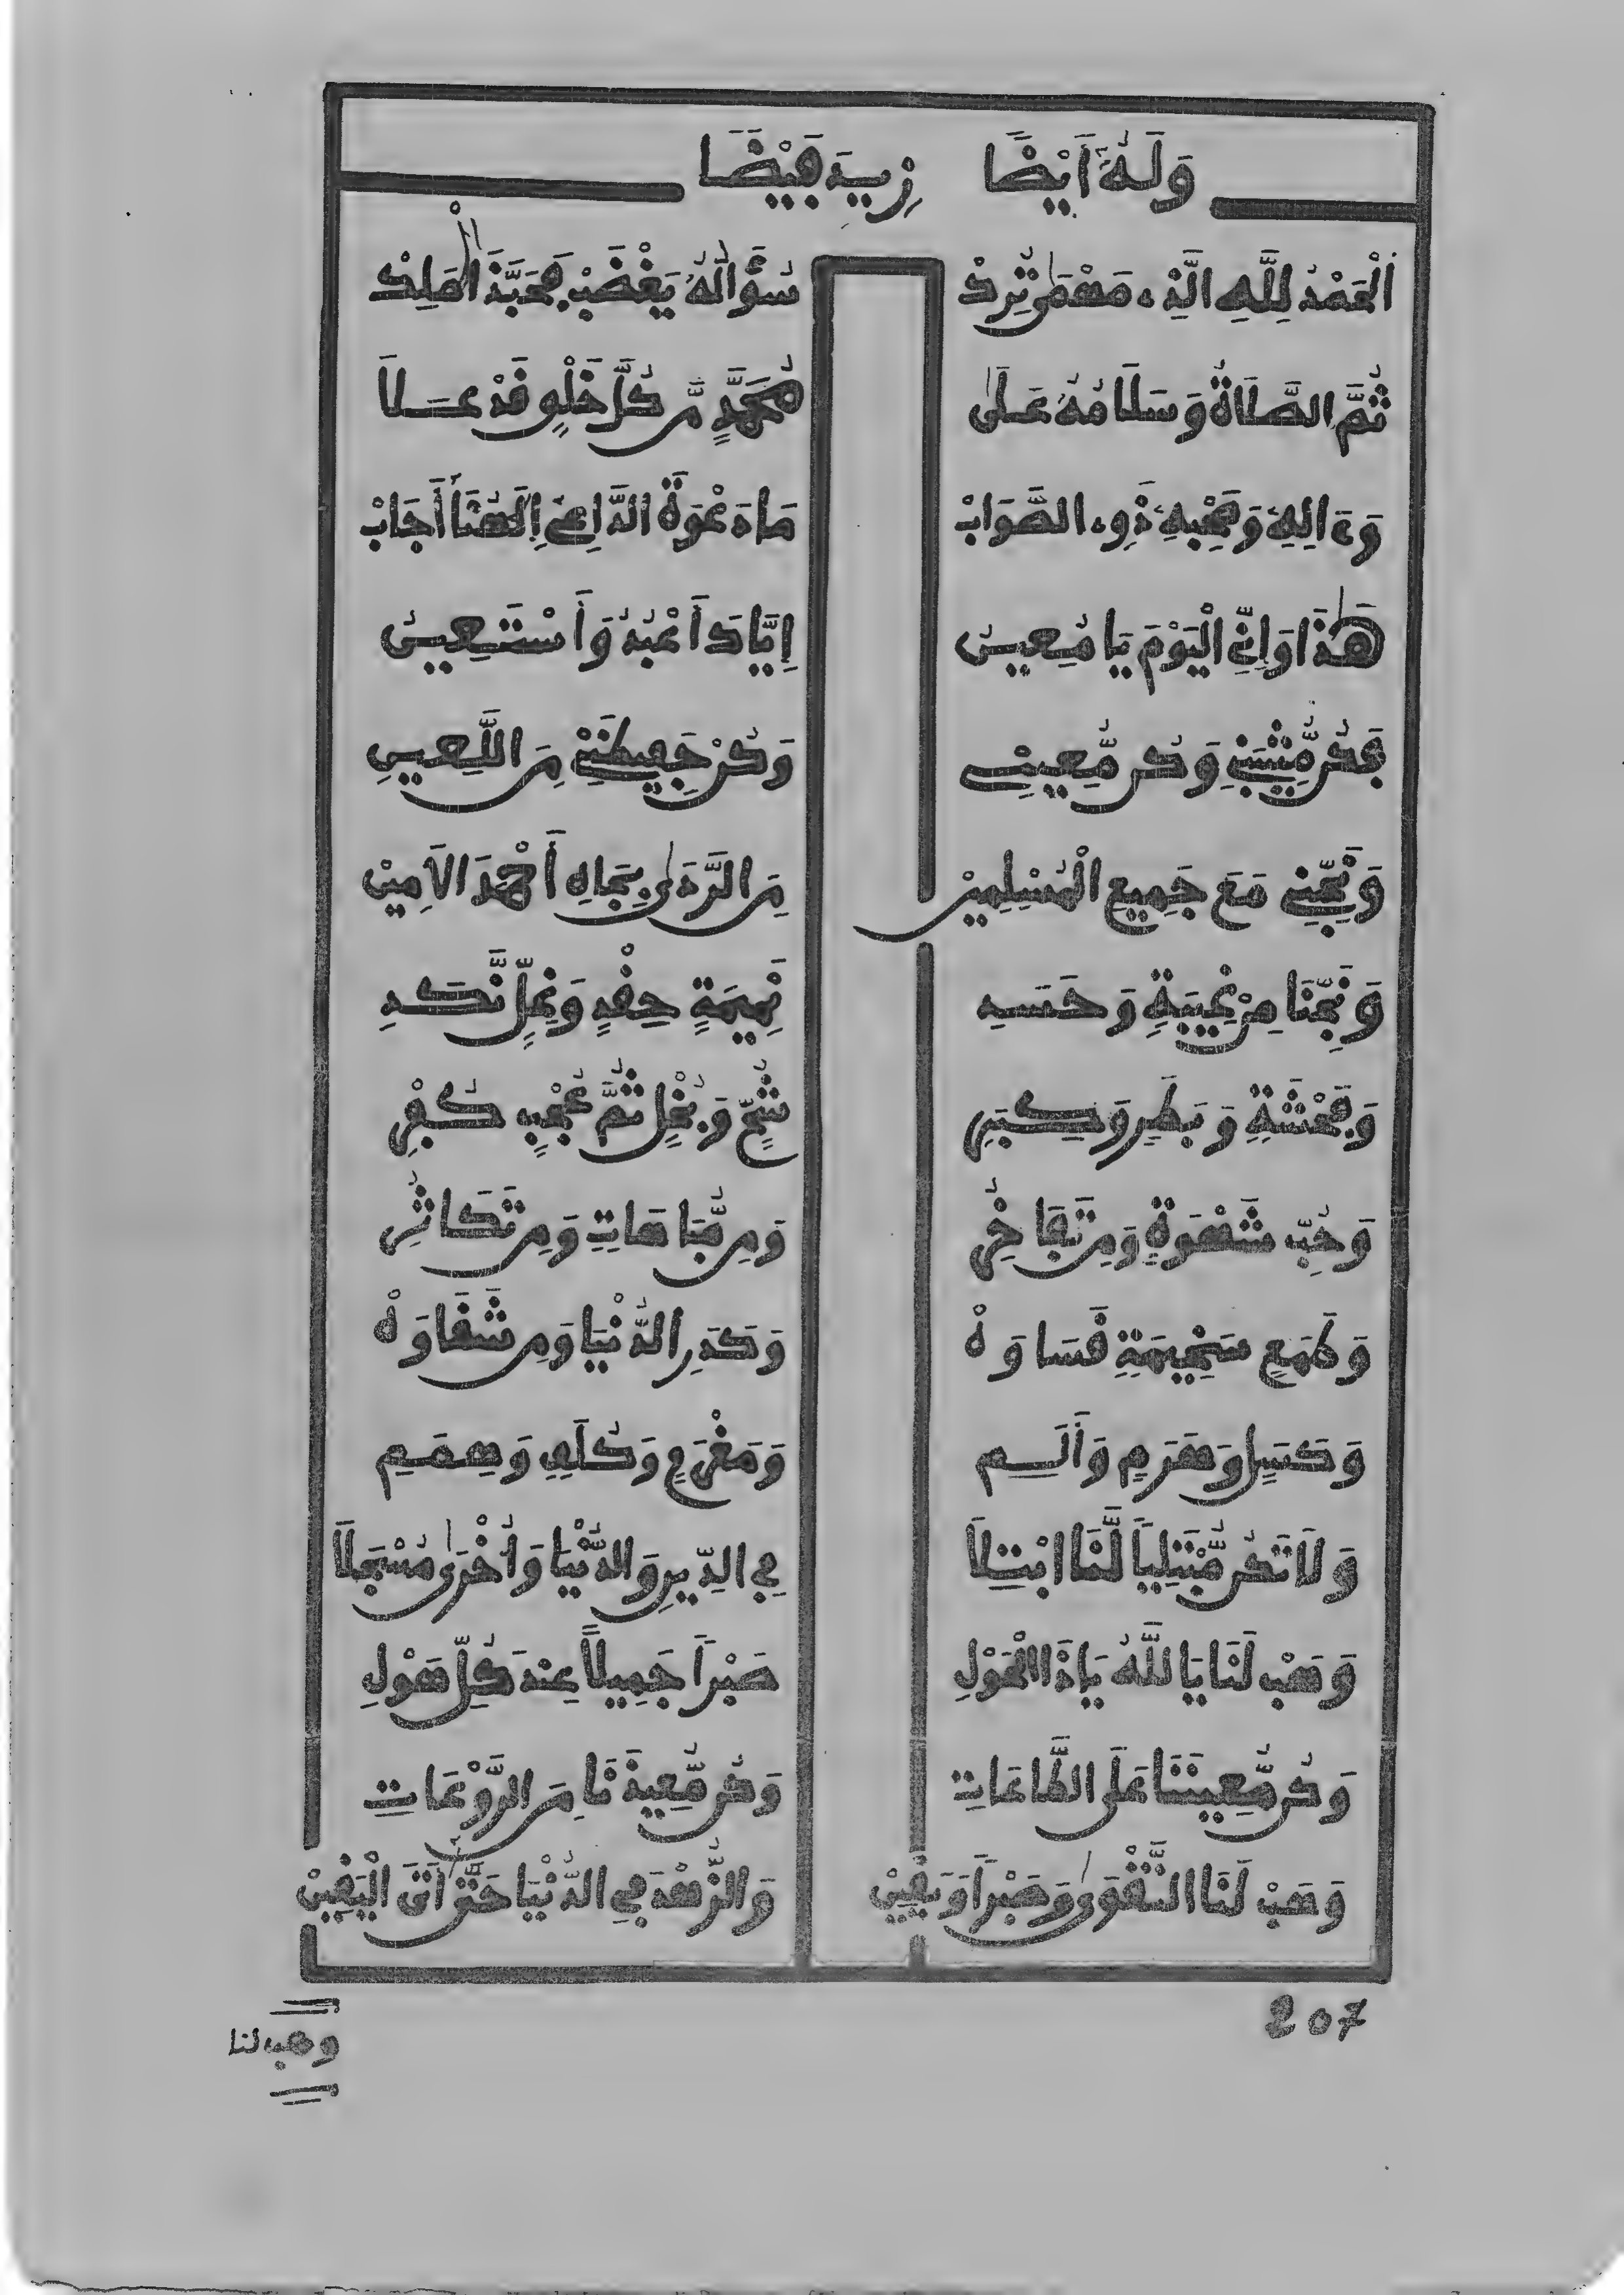 وَلَهُ أَيْضًا زِيدَ فَيْضًا
اَلْحَمْدُ لِلَّهِ الَّذِي مَهْمَى تُرِدْ سُؤَالَهُ يَغْضَبْ فَحَبَّذَا الْمَلِكْ
ثُمَّ الصَّلَاةُ وَسَلَامُهُ عَلَى مُحَمَّدٍ مَّن كُلَّ خَلْقٍ قَدْ عَلَا
وَءَالِهِ وَصَحْبِهِ ذَوِي الصَّوَابْ مَا دَعْوَةَ الدَّاعِي إِلَهُنَا أَجَابْ
هَذَا وَإِنِّي الْيَوْمَ يَا مُعِينُ إِيَّاكَ أَعْبُدُ وَأَسْتَعِينُ
فَكُن مُّثَبِّتِي وَكُن مُّعِينِي وَكُنْ حَفِيظَنِي مِنَ اللَّعِينِ
وَنَجِّنِي مَعَ جَمِيعِ الْمُسْلِمِينْ مِنَ الرَّدَى بِجَاهِ أَحْمَدَ الْأَمِينْ
وَنَجِّنَا مِنْ غِيبَةٍ وَحَسَدِ نَمِيمَةٍ حِقْدٍ وَغِلٍّ نَّكَدِ
وَفَحْشَةٍ وَبَطَرٍ وَكِبَرِ شُحٍّ وَبُخْلٍ ثُمَّ عُجْبٍ كُفْرِ
وَحُبِّ شَهْوَةٍ وَمِن تَفَاخُرِ وَمِن مُّبَاهَاتٍ وَمِن تَكَاثُرِ
وَطَمَعٍ سَخِيمَةٍ قَسَاوَهْ وَكَدَرِ الدُّنْيَا وَمِن شَقَاوَهْ
وَكَسَلٍ وَهَرَمٍ وَأَلَمِ وَمَغْرَمٍ وَكُلَفٍ وَهِمَمِ
وَلَا تَكُن مُّبْتَلِيًا لَّنَا ابْتِلَا فِي الدِّينِ وَالدُّنْيَا وَأُخْرَى مُسْجَلَا
وَهَبْ لَنَا يَا اللَّهُ يَا ذَا الْحَوْلِ صَبْرًا جَمِيلًا عِندَ كُلِّ هَوْلِ
وَكُن مُّعِينَنَا عَلَى الطَّاعَاتِ وَكُن مُّعِيذَنَا مِنَ الرَّوْعَاتِ
وَهَبْ لَنَا التَّقْوَى وَصَبْرًا وَيَقِينْ وَالزُّهْدَ فِي الدُّنْيَا حَتَّى أَتَى الْيَقِينْ
207
وهب لنا